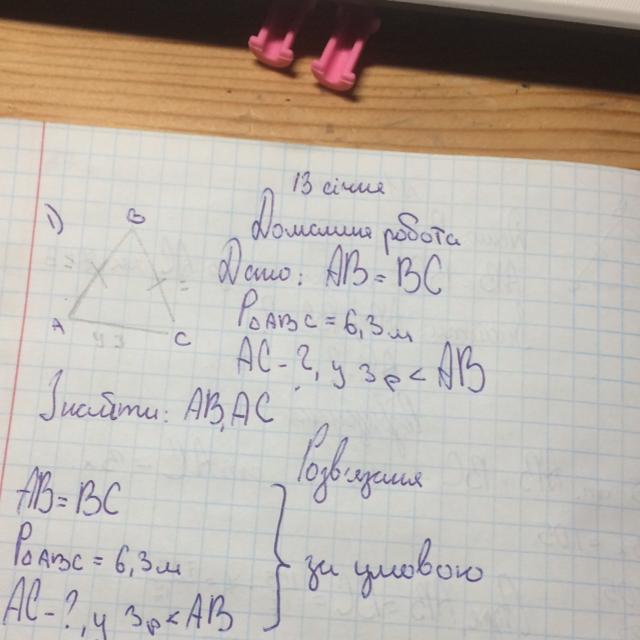 13 січня
Домашня робота
1)
B
A
C
Дано: AB = BC
P△ABC = 6,3 м
AC - ?, у 3 р < AB
Знайти: AB, AC
Розв'язання
AB = BC
P△ABC = 6,3 м
AC - ?, у 3 р < AB
за умовою